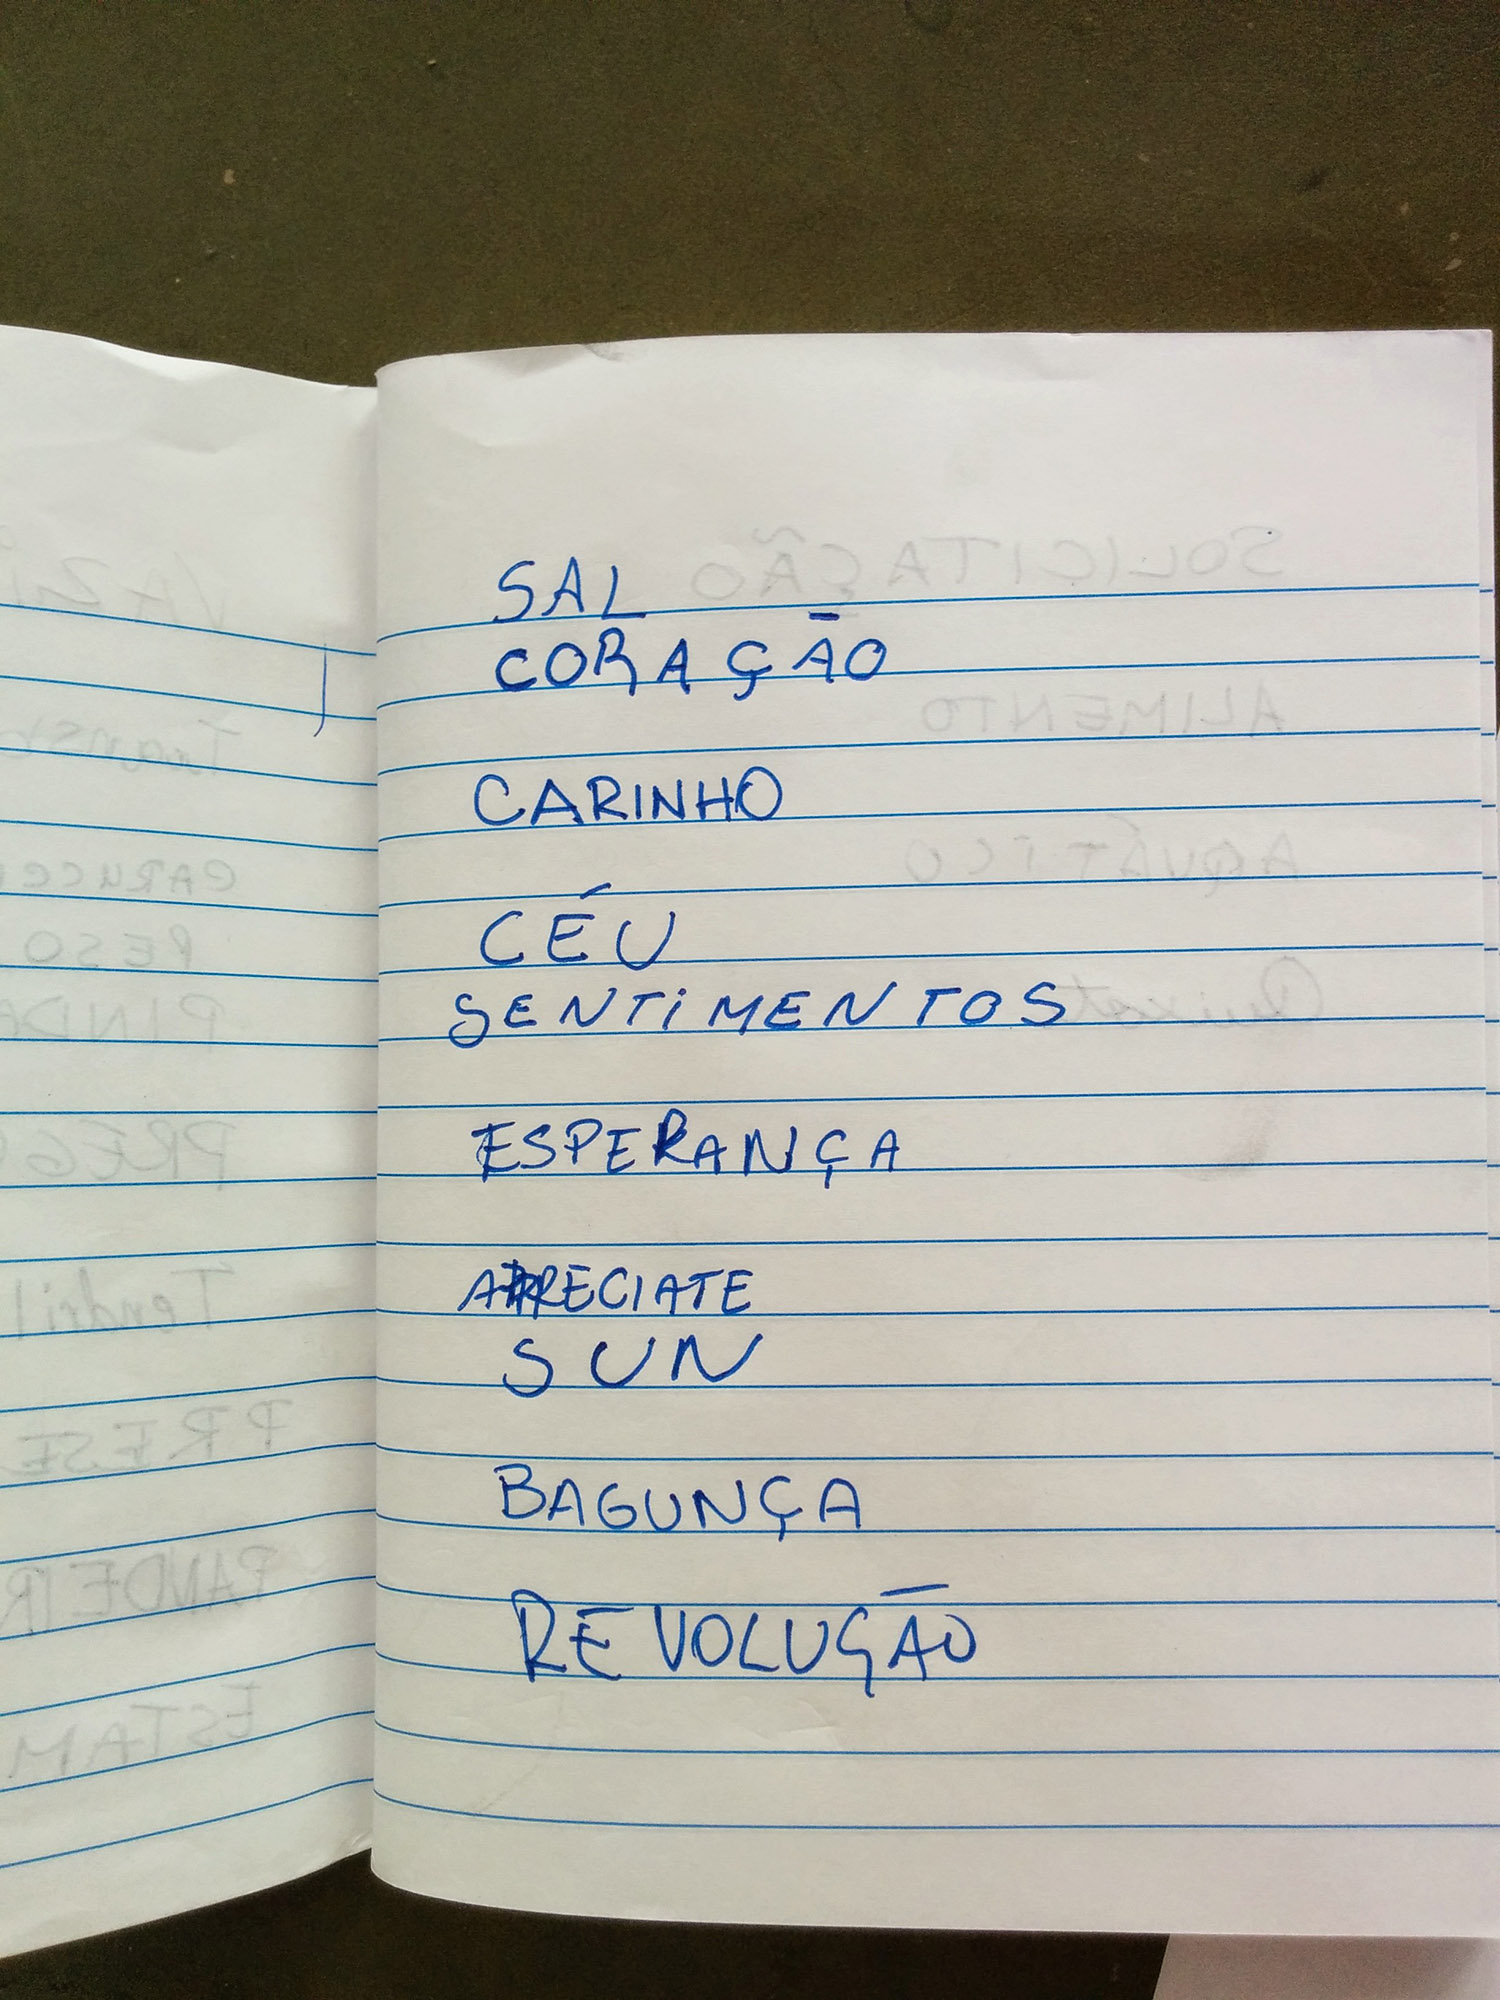 SAL
CORAÇÃO
CARINHO
CÉU
SENTIMENTOS
ESPERANÇA
APRECIATE
SUN
BAGUNÇA
REVOLUÇÃO